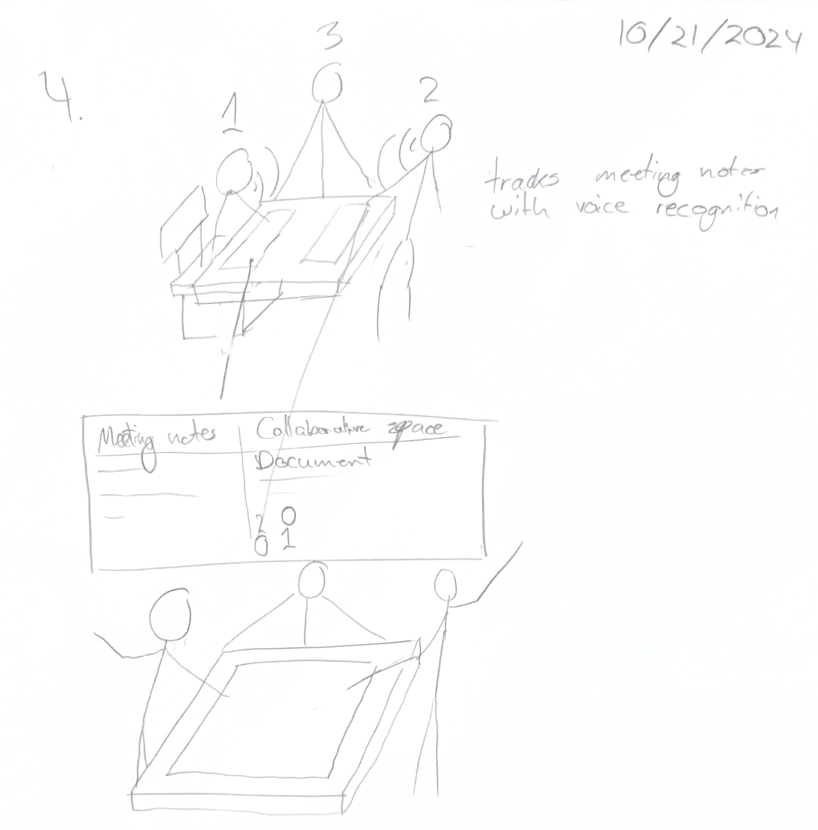 10/21/2024
3
4.
1
2
tracks meeting notes
with voice recognition
Meeting notes
Collaborative space
Document
2 0
0 1